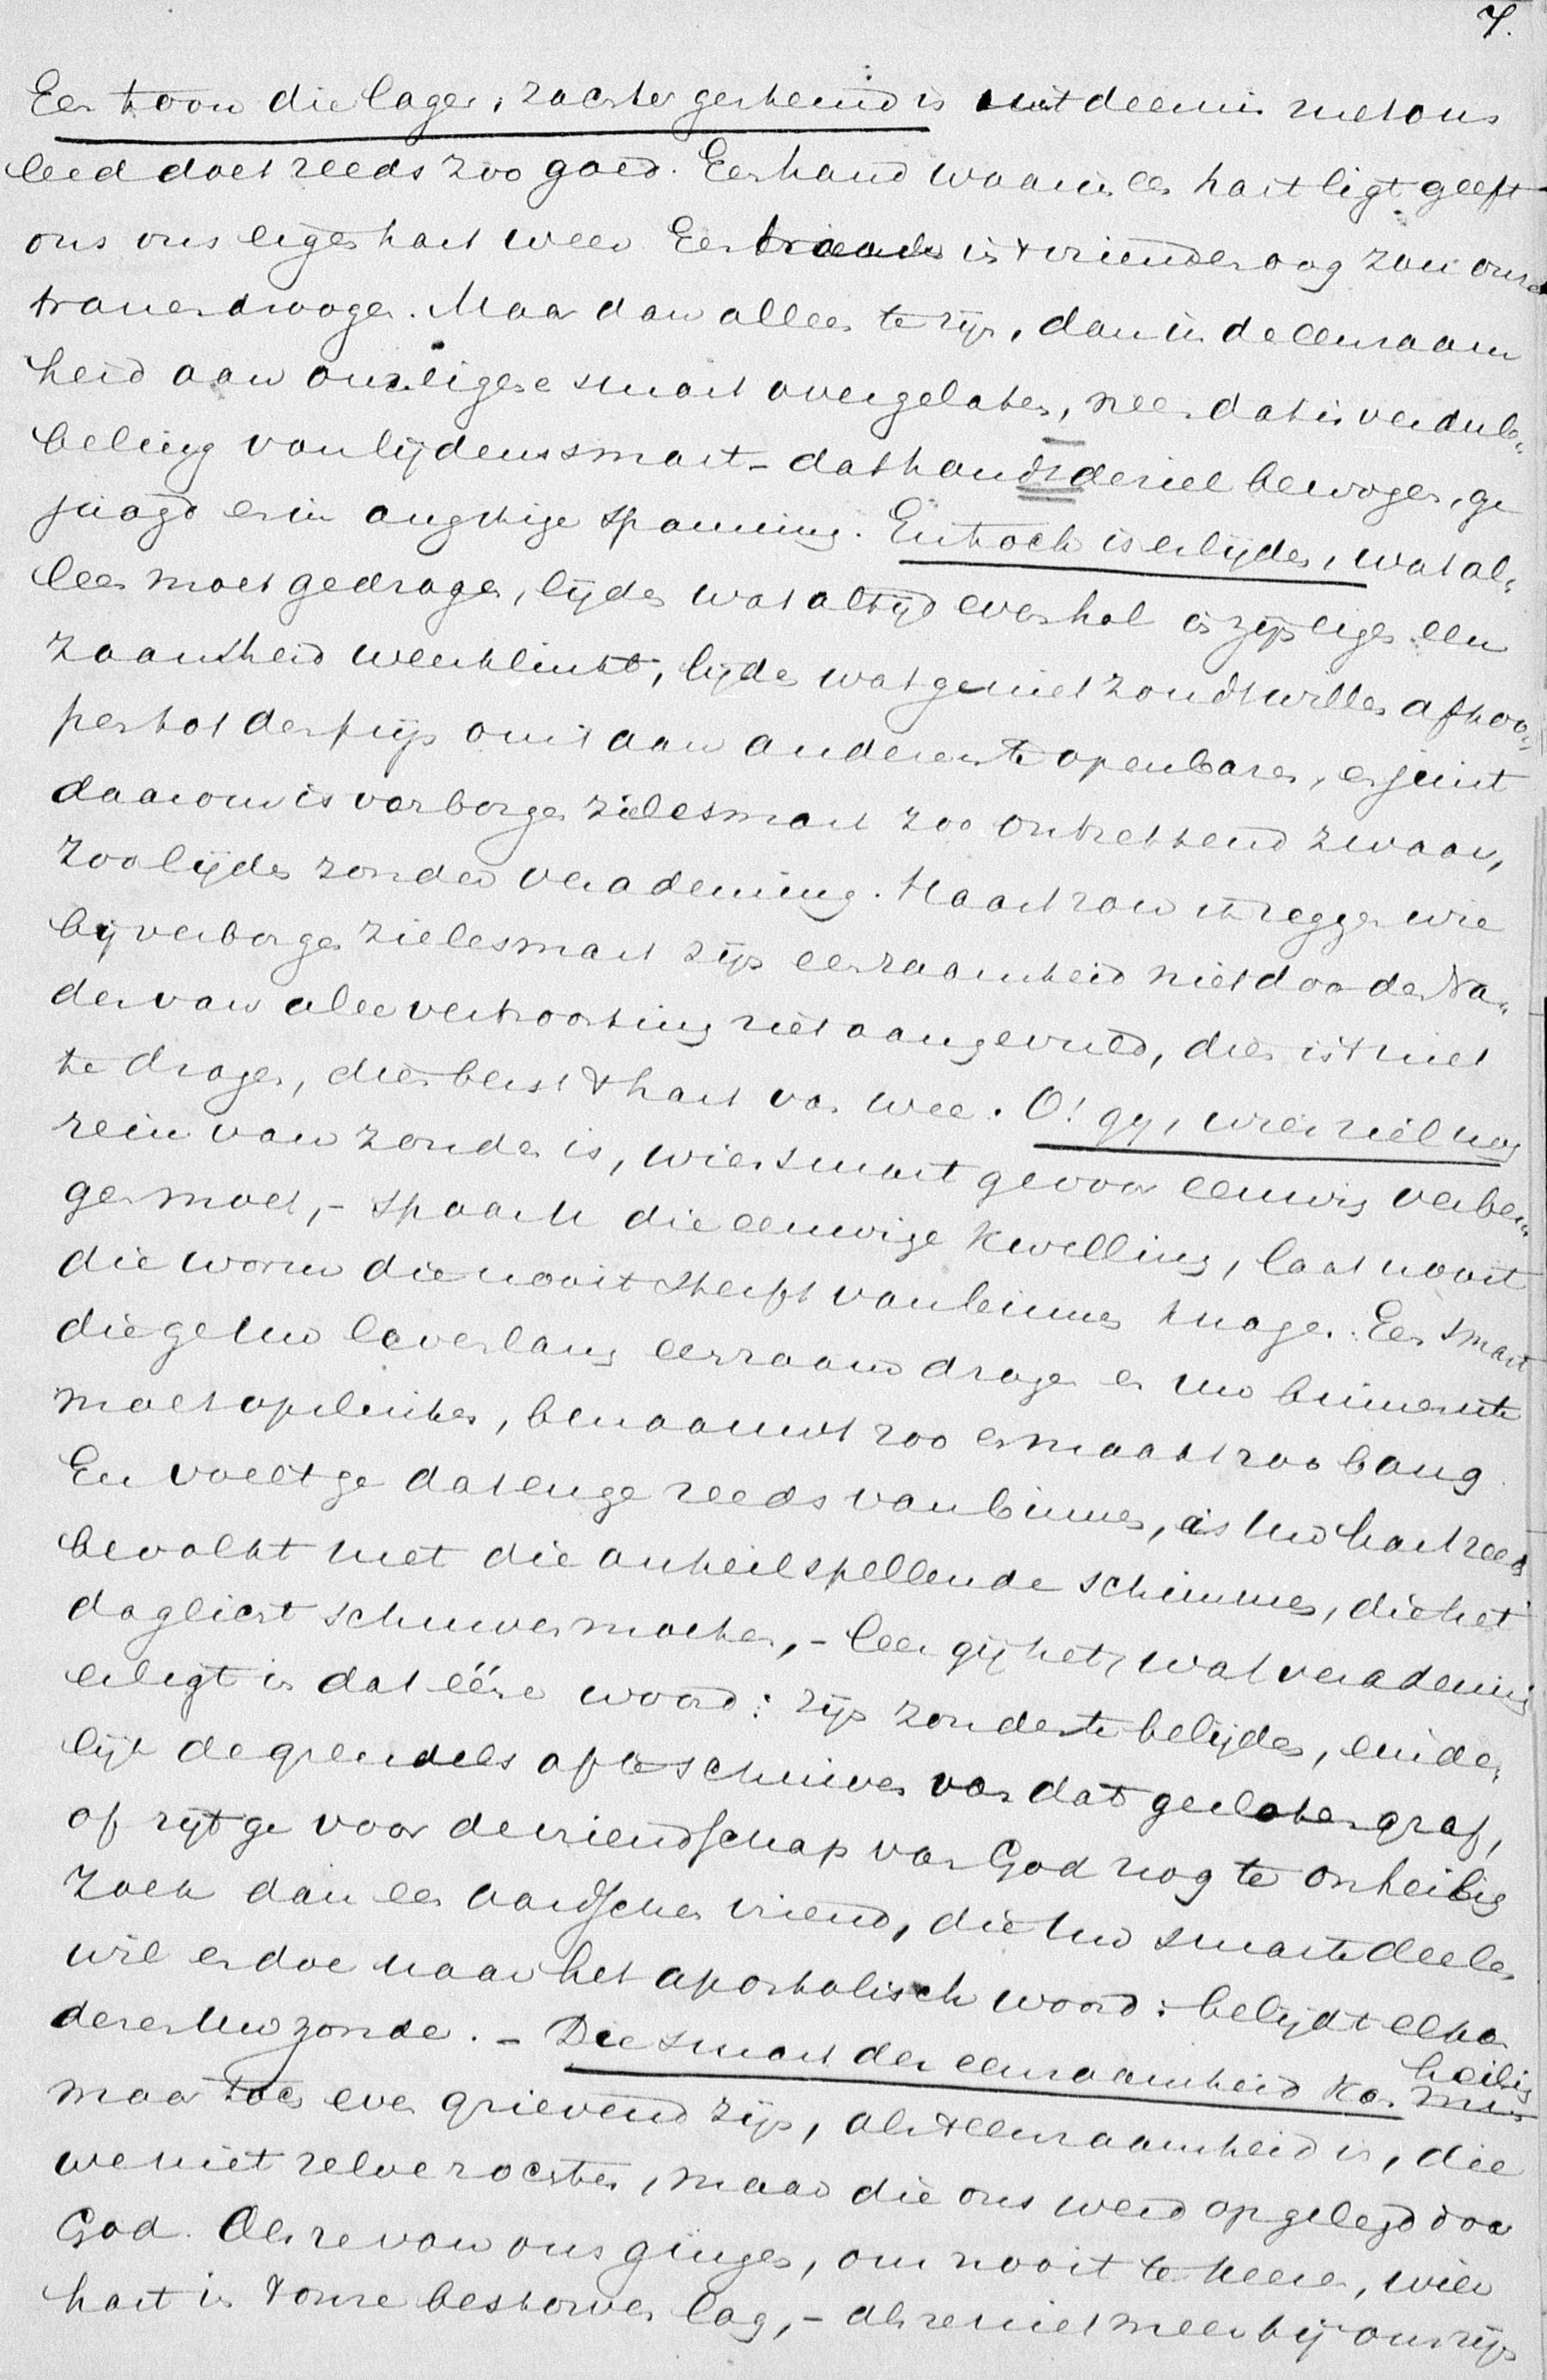 7.
Een toon die lager, zachter gestemd is uit deernis met ons
leed doet reeds zoo goed. Een hand waarin een hart ligt geeft
ons ons eigen hart weer. Een traan in 't vriendenoog zou onze
tranen droogen. Maar dan alleen te zijn, dan in de eenzaam
heid aan onze eigene smart overgelaten, neen dat is verdub-
beling van lijdenssmart - dat houdt de ziel bewogen, ge
jaagd en in angstige spanning. En toch is er lijden, wat al-
leen moet gedragen, lijden wat altijd even hol in zijn eigen een
zaamheid weerklinkt, lijden wat ge niet zoudt willen afkoo-
pen tot den prijs om 't aan anderen te openbaren, en juist
daarom is verborgen zielesmart zoo ontzettend zwaar,
zoo lijden zonder verademing. Haast zou ik zeggen wie
bij verborgen zielesmart zijn eenzaamheid niet door den Va-
der van alle vertroosting ziet aangevuld, dien is 't niet
te dragen, dien berst 't hart van wee. O! gij, wier ziel nog
rein van zonden is, wier smart ge voor eeuwig verber-
gen moet, - spaar U die eeuwige kwelling, laat nooit
die worm die nooit sterft van binnen knagen. Een smart
die ge Uw leven lang eenzaam dragen en Uw binnenste
moet opsluiten, benauwt zoo en maakt zoo bang.
En voelt ge dat enge reeds van binnen, is Uw hart reeds
bevolkt met die onheilspellende schimmen, die het
daglicht schuwen moeten, - leer gij het, wat verademing
er ligt in dat ééne woord: zijn zonden te belijden, einde-
lijk de grendels af te schuiven van dat gesloten graf,
of zijt ge voor de vriendschap van God nog te onheilig
zoek dan een aardschen vriend, die Uw smarte deelen
wil en doe naar het apostolisch woord: belijdt elkan
deren Uw zonde. - Die smart der eenzaamheid kan
heilig
maar toch even grievend zijn, als 't eenzaamheid is, die
we niet zelve zochten, maar die ons werd opgelegd door
God. Als ze van ons gingen, om nooit te keeren, wier
hart in 't onze bestorven lag, - als ze niet meer bij ons zijn